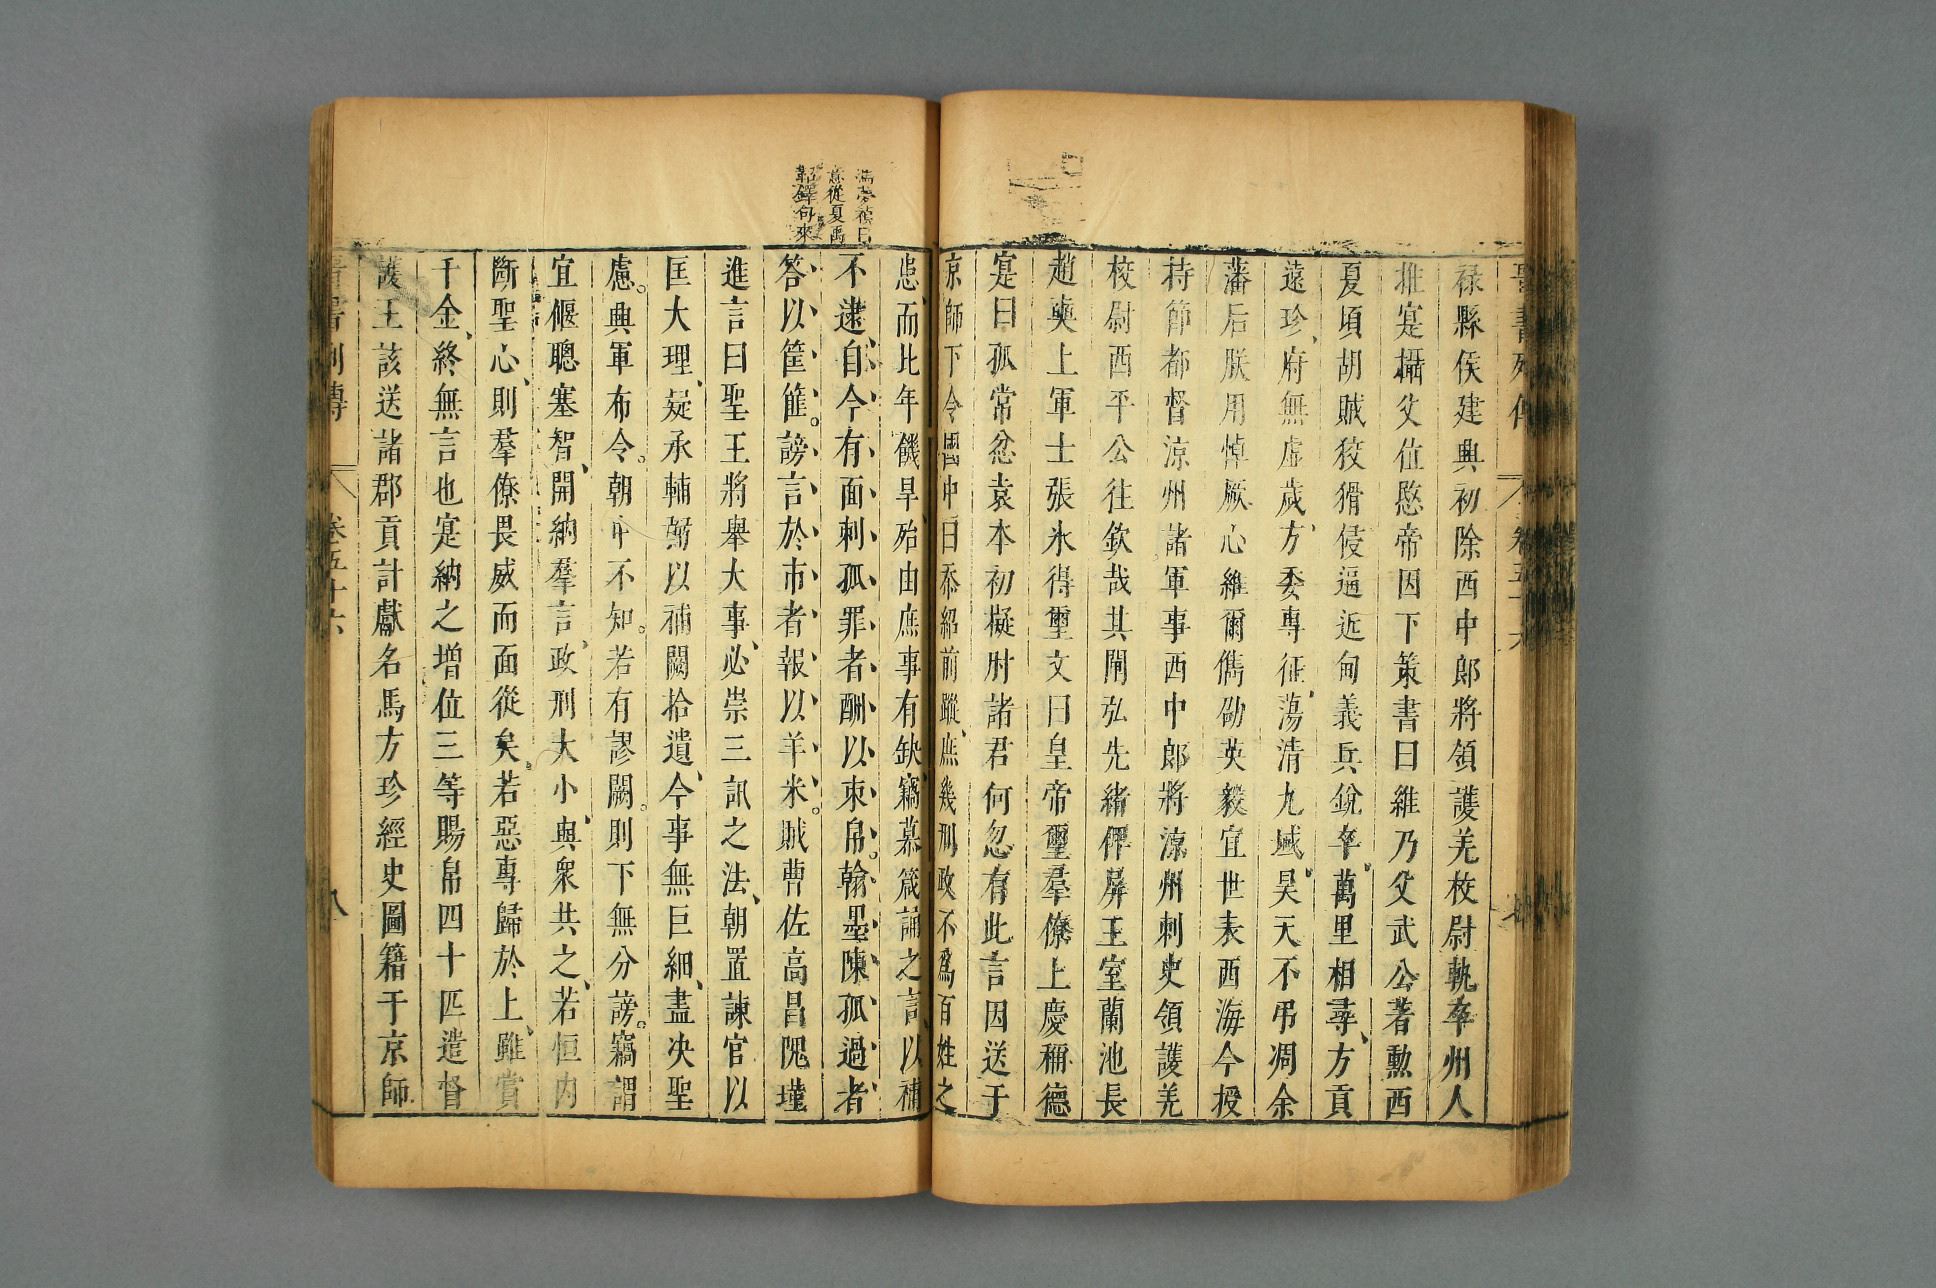 祿縣侯建興初除西中郎將領護羌校尉軌卒州人
推寔攝父位愍帝因下策書曰維乃父武公著勲西
夏頃胡賊狡猾侵逼近甸義兵銳卒萬里相尋方貢
遠珍府無虛歲方委專征蕩清九域昊天不弔凋余
藩后朕用悼厥心維爾儁劭英毅宜世表西海今授
持節都督涼州諸軍事西中郎將涼州刺史領護羌
校尉西平公往欽哉其闡弘先緒俾屏王室蘭池長
趙奭上軍士張氷得璽文曰皇帝璽羣僚上慶稱德
寔曰孤常忿袁本初擬肘諸君何忽有此言因送于
京師下令國中曰忝紹前蹤庶幾刑政不爲百姓之
患而比年饑旱殆由庶事有缺竊慕箴誦之言以補
不逮自今有面刺孤罪者酬以束帛翰墨陳孤過者
答以筐篚謗言於市者報以羊米賊曹佐高昌隗瑾
進言曰聖王將舉大事必崇三訊之法朝置諫官以
匡大理疑承輔弼以補闕拾遺今事無巨細盡決聖
慮興軍布令朝中不知若有謬闕則下無分謗竊謂
宜偃聰塞智開納羣言政刑大小與衆共之若恒内
斷聖心則羣僚畏威而面從矣若惡專歸於上雖賞
千金終無言也寔納之增位三等賜帛四十匹遣督
護王該送諸郡貢計獻名馬方珍經史圖籍于京師
晉書列傳
卷五十六
八
意從夏禹
鞀鐸句來